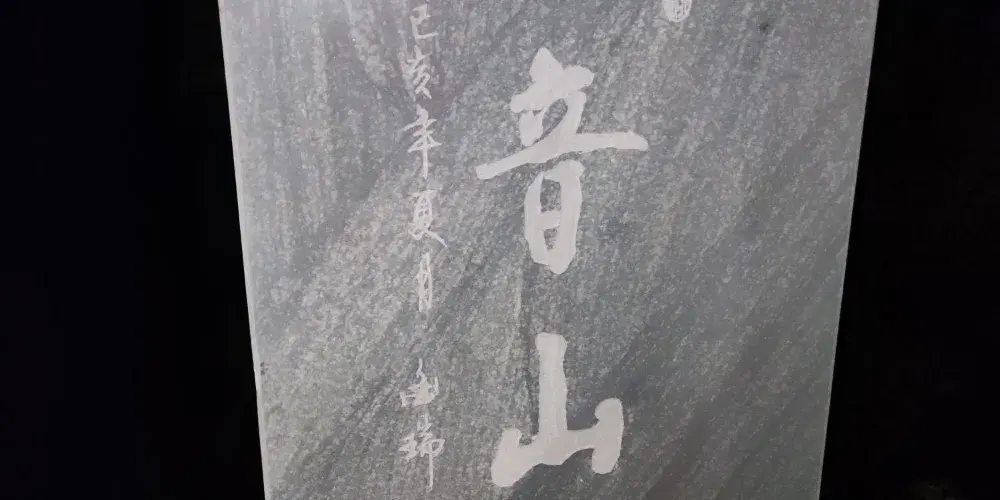 音山
己亥年夏月 瑞